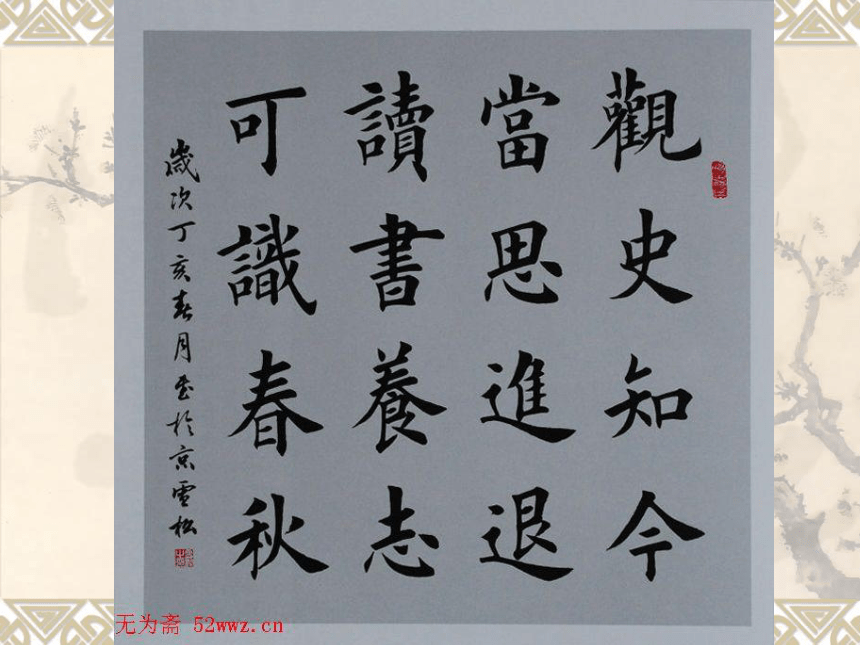 觀史知今
當思進退
讀書養志
可識春秋
歲次丁亥春月書於京雪松
无为斋 52wwz.cn